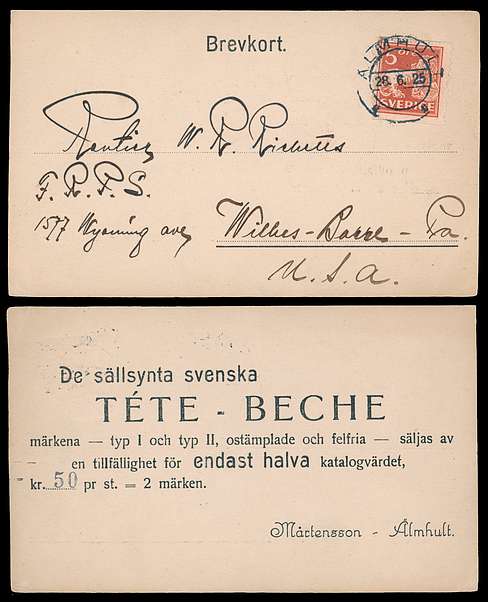 Brevkort.
ÄLMHULT
28. 6. 25
SVERIGE
W. R. Ricketts
F. R. P. S.
1577 Wyoming ave
Wilkes-Barre - Pa.
U. S. A.
De sällsynta svenska
TÉTE - BECHE
märkena — typ I och typ II, ostämplade och felfria — säljas av
en tillfällighet för endast halva katalogvärdet,
kr. 50 pr st. = 2 märken.
Mårtensson - Älmhult.